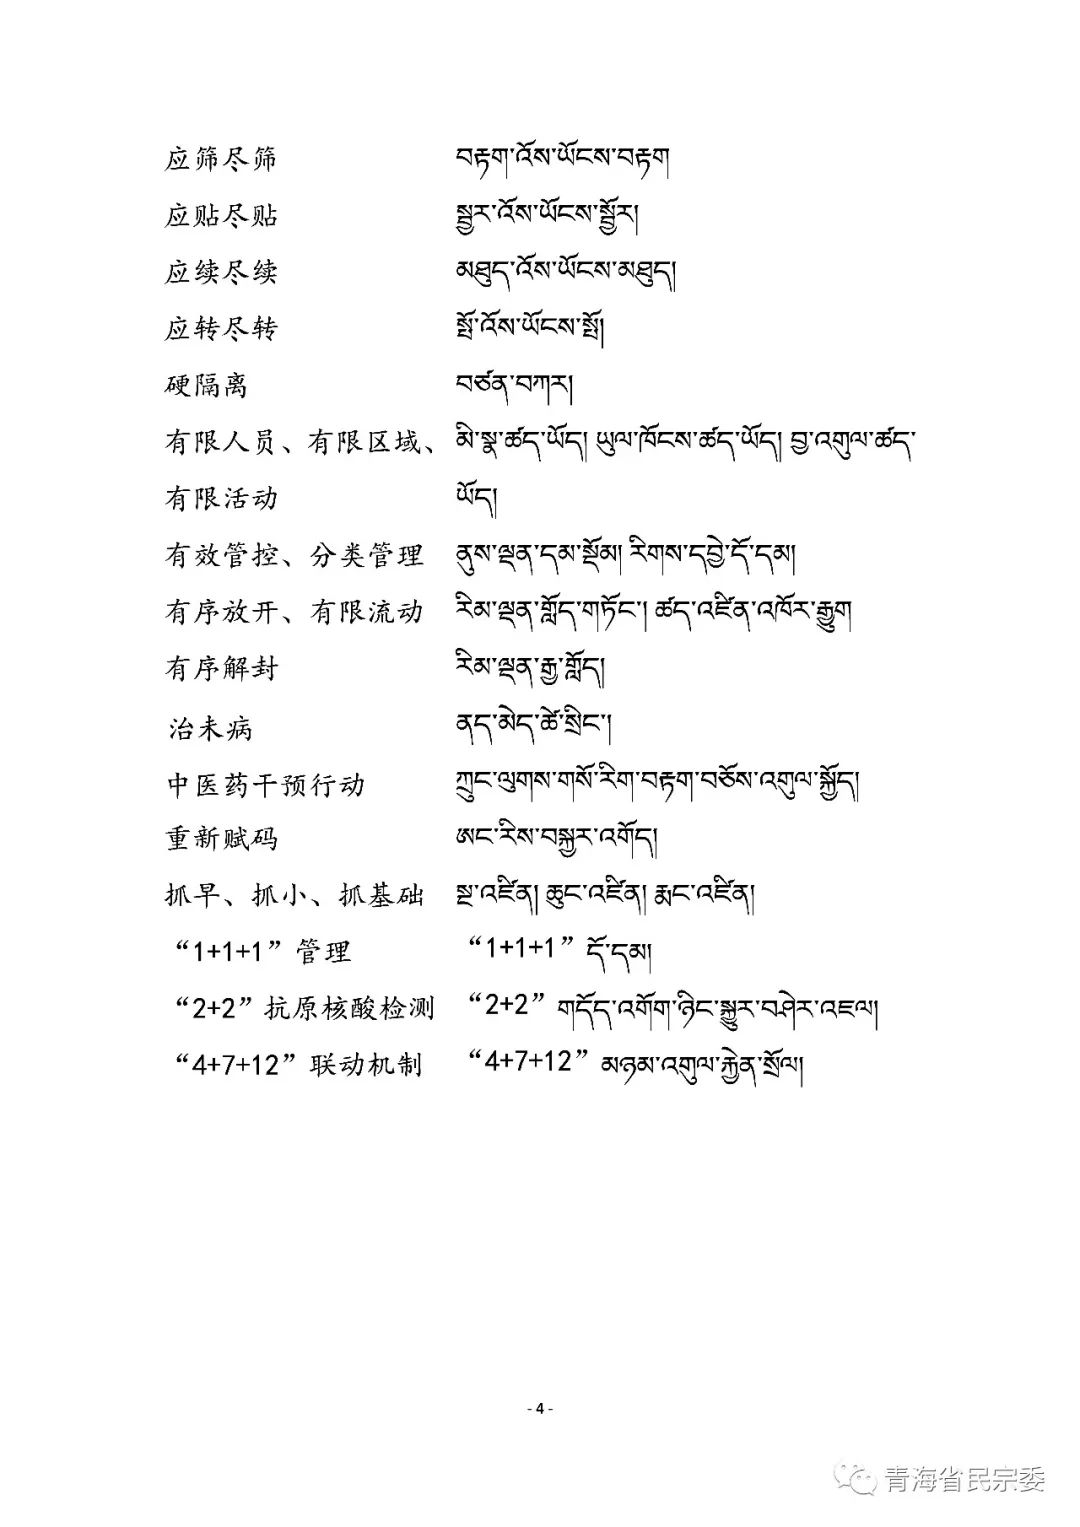 应筛尽筛 བརྟག་འོས་ཡོངས་བརྟག
应贴尽贴 སྦྱར་འོས་ཡོངས་སྦྱོར།
应续尽续 མཐུད་འོས་ཡོངས་མཐུད།
应转尽转 སྤོ་འོས་ཡོངས་སྤོ།
硬隔离 བཙན་བཀར།
有限人员、有限区域、 མི་སྣ་ཚད་ཡོད། ཡུལ་ཁོངས་ཚད་ཡོད། བྱ་འགུལ་ཚད་
有限活动 ཡོད།
有效管控、分类管理 ནུས་ལྡན་དམ་སྡོམ། རིགས་དབྱེ་དོ་དམ།
有序放开、有限流动 རིམ་ལྡན་གློད་གཏོང་། ཚད་འཛིན་འཁོར་རྒྱུག
有序解封 རིམ་ལྡན་རྒྱ་གློད།
治未病 ནད་མེད་ཚེ་སྲིང་།
中医药干预行动 ཀྲུང་ལུགས་གསོ་རིག་བརྟག་བཅོས་འགུལ་སྐྱོད།
重新赋码 ཨང་རིས་བསྐྱར་འགོད།
抓早、抓小、抓基础 སྔ་འཛིན། ཆུང་འཛིན། རྨང་འཛིན།
“1+1+1”管理 “1+1+1”དོ་དམ།
“2+2”抗原核酸检测 “2+2”གདོད་འགོག་ཉིང་སྐྱུར་བཤེར་འཇལ།
“4+7+12”联动机制 “4+7+12”མཉམ་འགུལ་རྐྱེན་སྲོལ།
- 4 -
青海省民宗委